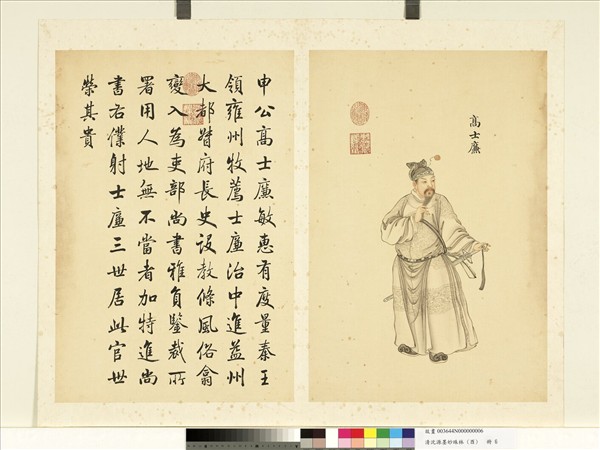 高士廉
申公高士廉敏惠有度量秦王
領雍州牧薦士廉治中進益州
大都督府長史設教條風俗翕
變入為吏部尚書雅負鑒裁所
署用人地無不當者加特進尚
書右僕射士廉三世居此官世
榮其貴
故畫 003644N000000006
清沈源墨妙珠林 冊 6